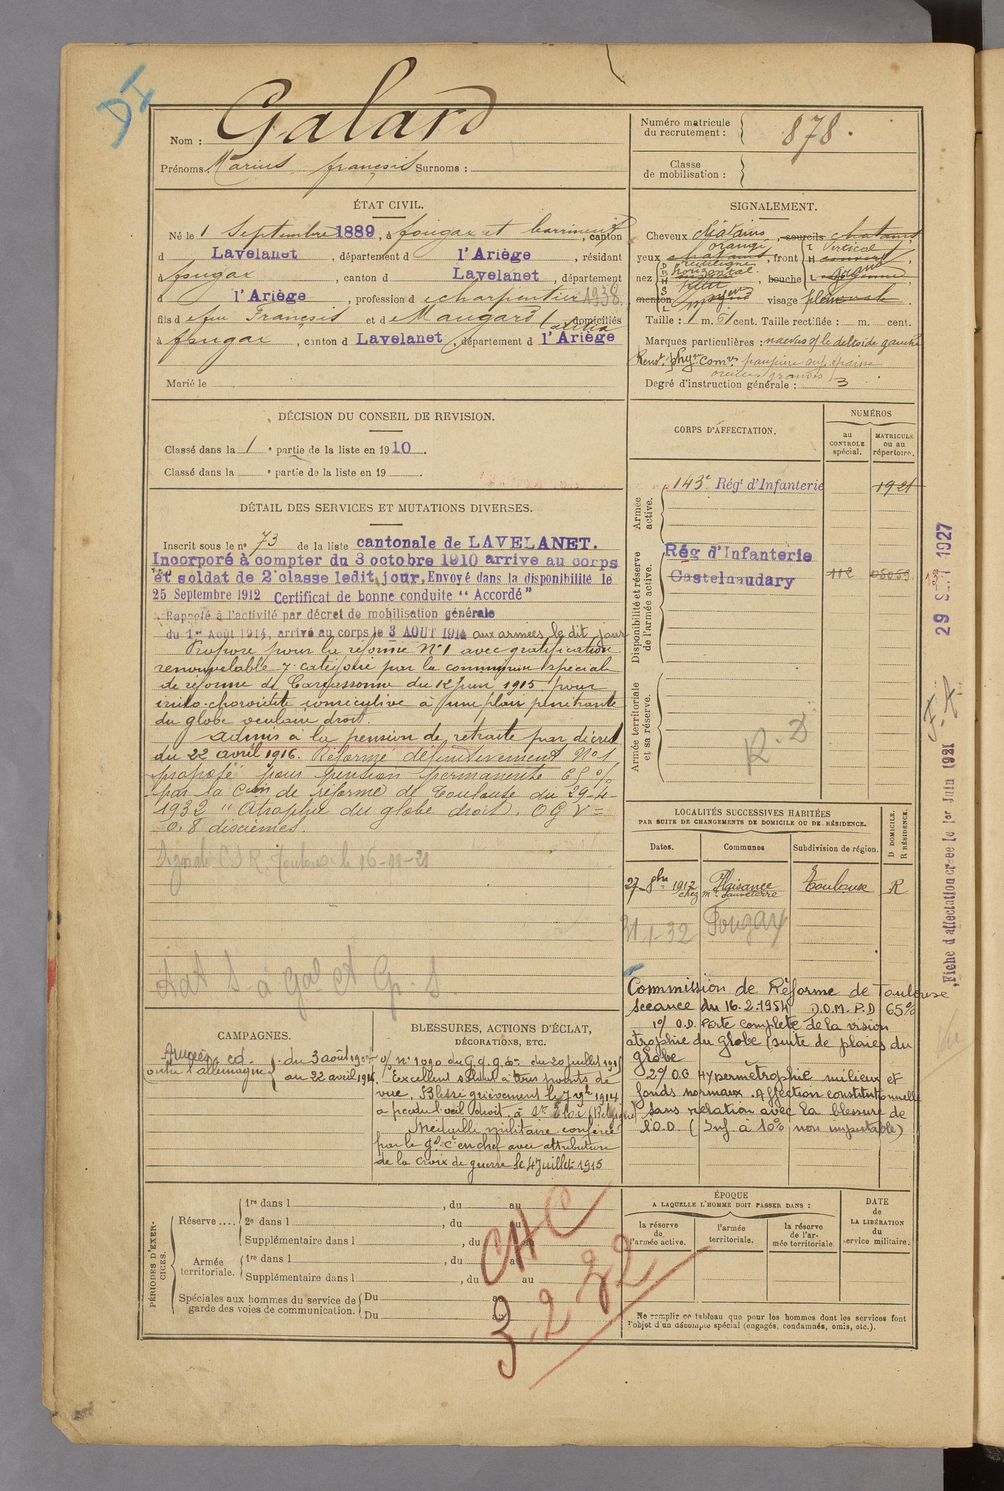 DI
Nom : Galard
Prénoms Marius françois Surnoms :
Numéro matricule du recrutement : 878.
Classe de mobilisation :
ÉTAT CIVIL.
Né le 1 Septembre 1889, à fougax et barrineuf, canton
d Lavelanet, département d l'Ariège, résidant
à fougax, canton d Lavelanet, département
d l'Ariège, profession d charpentier 1938
fils d e feu François et d e Maugard domiciliés
à fougax, canton d Lavelanet, département d l'Ariège
Marié le
SIGNALEMENT.
Cheveux châtains, sourcils chatains
yeux orangé, front vertical
nez rectiligne horizontal, bouche
menton visage plein
Taille : 1 m. 61 cent. Taille rectifiée : m. cent.
Marques particulières : naevus
Rens. phys. Com.
oreilles grandes
Degré d'instruction générale : 3
DÉCISION DU CONSEIL DE REVISION.
Classé dans la 1 e partie de la liste en 1910.
Classé dans la e partie de la liste en 19
DÉTAIL DES SERVICES ET MUTATIONS DIVERSES.
Inscrit sous le n° 73 de la liste cantonale de LAVELANET.
Incorporé à compter du 3 octobre 1910 arrive au corps
et soldat de 2e classe ledit jour, Envoyé dans la disponibilité le
25 Septembre 1912 Certificat de bonne conduite "Accordé"
Rappelé à l'activité par décret de mobilisation générale
du 1er Août 1914, arrivé au corps le 3 AOUT 1914 aux armées le dit jour
Proposé pour la réforme N°1 avec gratification
renouvelable 7e catégorie par la commission spécial
de réforme de Carcassonne du 12 juin 1915 pour
irido-choroïdite consécutive à une plaie pénétrante
du globe oculaire droit.
Admis à la pension de retraite par décret
du 22 avril 1916. Réformé définitivement N°1
proposé pour pension permanente 65 %
par la Com de réforme de Toulouse du 29-4-
1932 "Atrophie du globe droit. OG V =
0,8 dixièmes.
C.S.R. Toulouse le 16-11-21
CORPS D'AFFECTATION.
NUMÉROS
au CONTROLE spécial.
MATRICULE ou au répertoire.
Armée active.
143e Régt d'Infanterie
1921
Disponibilité et réserve de l'armée active.
Rég d'Infanterie
Castelnaudary
112
Armée territoriale et sa réserve.
R.D.
LOCALITÉS SUCCESSIVES HABITÉES
PAR SUITE DE CHANGEMENTS DE DOMICILE OU DE RÉSIDENCE.
Dates.
Communes
Subdivision de région.
D DOMICILE.
R RÉSIDENCE.
27 8bre 1912 Plaisance Toulouse R
chez Mr Sauveterre
31-1-32 Fougax
Commission de Réforme de Toulouse
séance du 16.2.1954 D.O.M. P.D 65%
1°/ O.D. Perte complete de la vision
atrophie du globe (suite de plaies du
globe
2°/ O.G Hypermétrophie milieux et
fonds normaux. Affection constitutionnelle
sans relation avec la blessure de
l'O.D. (Inf. à 10% non imputable)
CAMPAGNES.
contre l'allemagne
du 3 août 1914
au 22 avril 1916
BLESSURES, ACTIONS D'ÉCLAT, DÉCORATIONS, ETC.
O/ n° 1090 du G.Q.G. du 20 juillet 1915
Excellent soldat à tous points de
vue. Blessé grièvement le 7 9bre 1914
a perdu l'oeil droit, à St Eloi (Belgique)
Médaille militaire conférée
par le gal Ct en chef avec attribution
de la Croix de guerre le 4 juillet 1915
PÉRIODES D'EXERCICES.
Réserve....
1re dans l , du au
2e dans l , du au
Supplémentaire dans l , du au
Armée territoriale.
1re dans l , du au
Supplémentaire dans l , du au
Spéciales aux hommes du service de garde des voies de communication.
Du au
Du au
CHC
3222
ÉPOQUE
A LAQUELLE L'HOMME DOIT PASSER DANS :
la réserve de l'armée active.
l'armée territoriale.
la réserve de l'armée territoriale.
DATE de LA LIBÉRATION du service militaire.
Ne remplir ce tableau que pour les hommes dont les services font
l'objet d'un décompte spécial (engagés, condamnés, omis, etc.).
Fiche d'affectation créée le 1er Juin 1921
1927